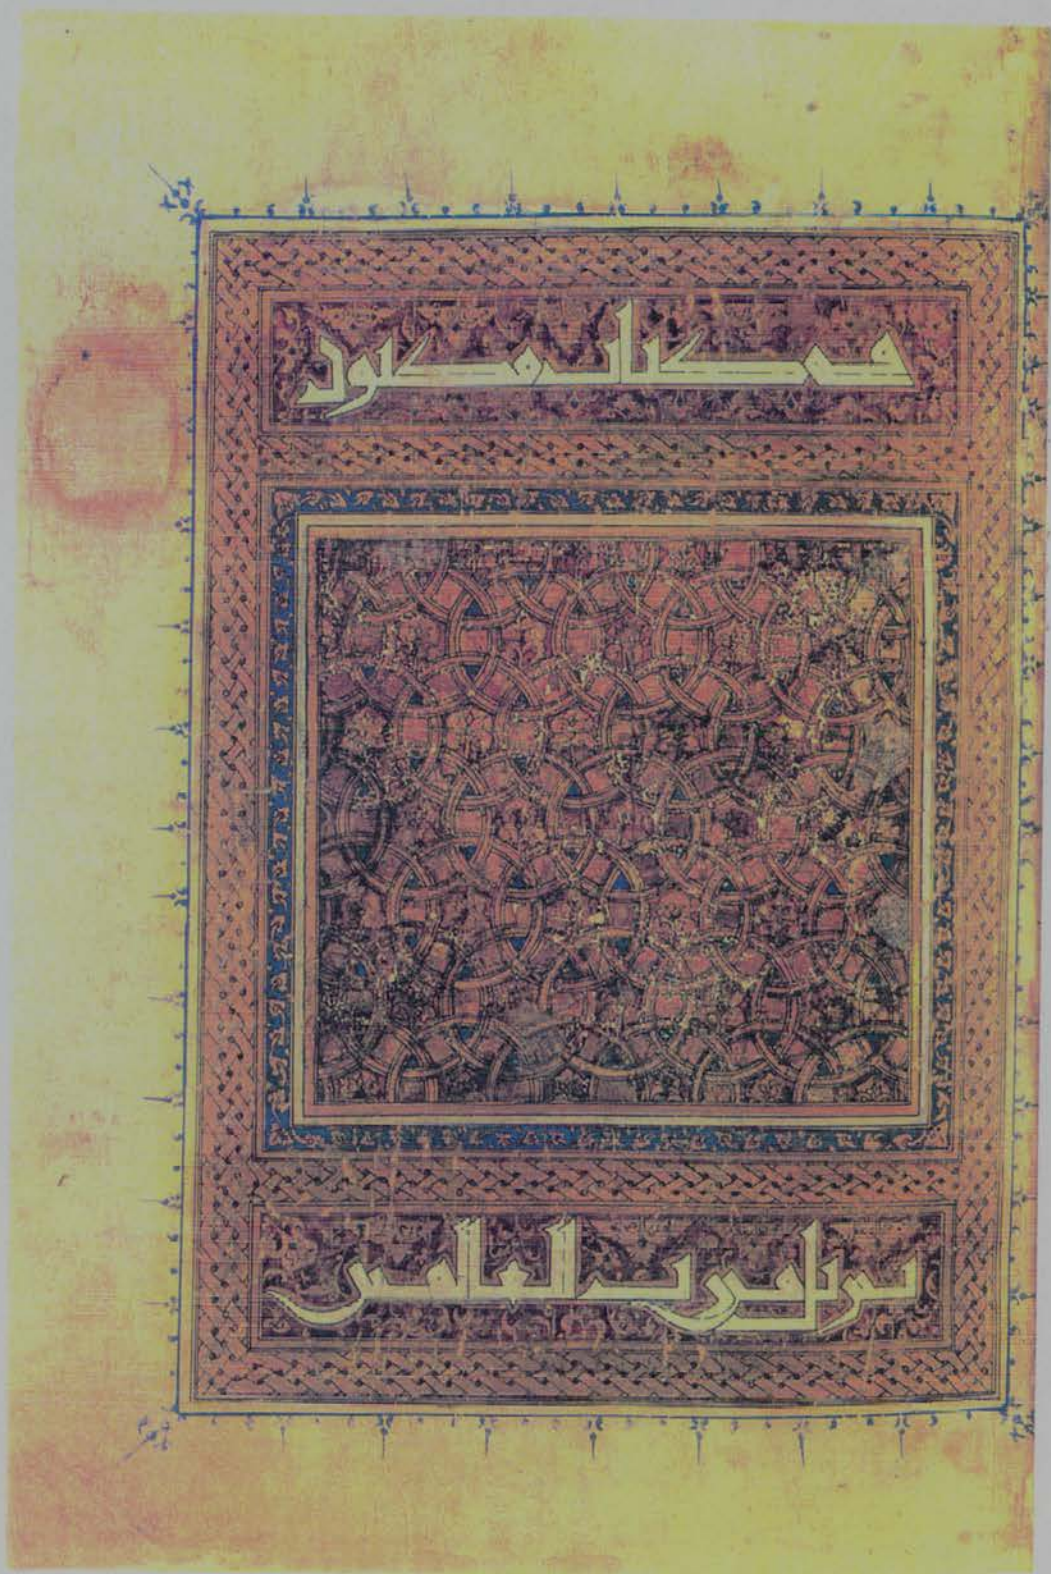 في كتاب مكنون
تنزيل من رب العالمين